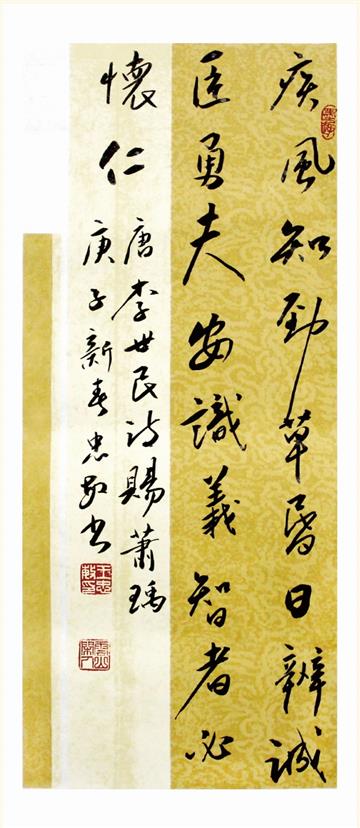 疾風知勁草昏日辨誠
臣勇夫安識義智者必
懷仁
唐李世民诗賜蕭瑀
庚子新春忠书